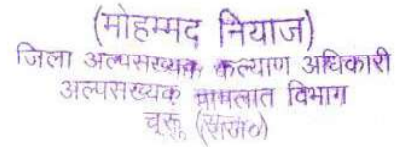 (मोहम्मद नियाज)
जिला अल्पसख्यक कल्याण अधिकारी
अल्पसख्यक मामलात विभाग
चूरू (राज०)